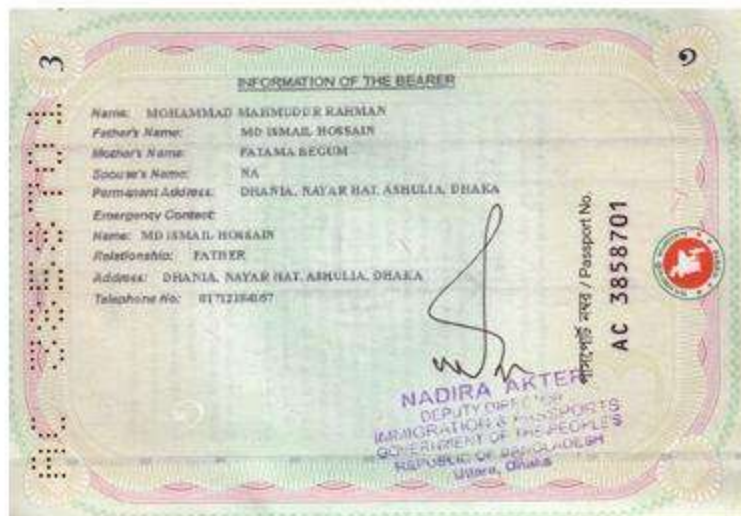 3
৩
INFORMATION OF THE BEARER
Name: MOHAMMAD MAHMUDUR RAHMAN
Father's Name: MD ISMAIL HOSSAIN
Mother's Name: FATAMA BEGUM
Spouse's Name: NA
Permanent Address: DHANIA, NAYAR HAT, ASHULIA, DHAKA
Emergency Contact:
Name: MD ISMAIL HOSSAIN
Relationship: FATHER
Address: DHANIA, NAYAR HAT, ASHULIA, DHAKA
Telephone No:
পাসপোর্ট নম্বর / Passport No.
AC 3858701
NADIRA AKTER
DEPUTY DIRECTOR
IMMIGRATION & PASSPORTS
GOVERNMENT OF THE PEOPLE'S
REPUBLIC OF BANGLADESH
Uttara, Dhaka